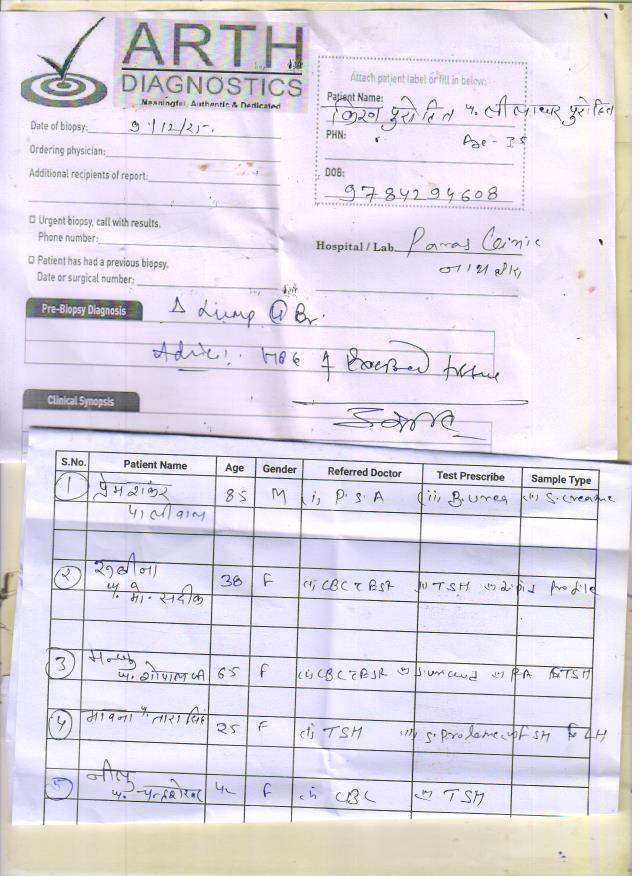 ARTH
DIAGNOSTICS
Meaningful, Authentic & Dedicated
Attach patient label or fill in below:
Patient Name:
किरण पुरोहित प. लीलाधर पुरोहित
PHN:
Age - 35
Date of biopsy: 9/12/25
Ordering physician:
Additional recipients of report:
DOB:
9784294608
Urgent biopsy, call with results.
Phone number:
Hospital / Lab. Paras Clinic
Patient has had a previous biopsy.
Date or surgical number:
Pre-Biopsy Diagnosis
Δ Lump Br.
Advice: HPE of tissue
Clinical Synopsis
S.No. Patient Name Age Gender Referred Doctor Test Prescribe Sample Type
1 प्रेमशंकर 85 M (i) P.S.A (ii) B.urea (iii) S.creatine
पालीवाल
2 38 F (i) CBC ESR (ii) TSH (iii) Lipid Profile
प. मो. सदीक
3 प. गोपाल जी 65 F (i) CBC ESR (ii) S.uric acid (iii) RA (iv) TSH
4 भावना प. तारा सिंह 25 F (i) TSH (ii) S.prolactin (iii) FSH (iv) LH
5 नीलू F (i) CBC (ii) TSH